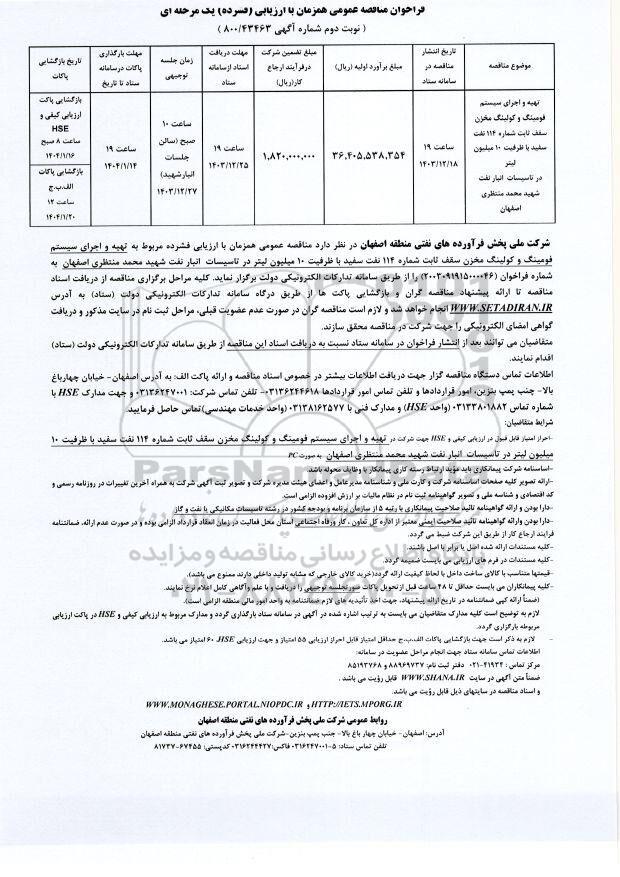 فراخوان مناقصه عمومی همزمان با ارزیابی (فشرده) یک مرحله ای
( نوبت دوم شماره آگهی ۸۰۰/۴۳۴۶۳ )
موضوع مناقصه
تاریخ انتشار مناقصه در سامانه ستاد
مبلغ برآورد اولیه (ریال)
مبلغ تضمین شرکت درفرآیند ارجاع کار(ریال)
مهلت دریافت اسناد ازسامانه ستاد
زمان جلسه توجیهی
مهلت بارگذاری پاکات درسامانه ستاد تا تاریخ
تاریخ بازگشایی پاکات
تهیه و اجرای سیستم
فومینگ و کولینگ مخزن
سقف ثابت شماره ۱۱۴ نفت
سفید با ظرفیت ۱۰ میلیون
لیتر
در تاسیسات انبار نفت
شهید محمد منتظری
اصفهان
ساعت ۱۹
۱۴۰۳/۱۲/۱۸
۳۶,۴۰۵,۵۳۸,۳۵۴
۱,۸۲۰,۰۰۰,۰۰۰
ساعت ۱۹
۱۴۰۳/۱۲/۲۵
ساعت ۱۰
صبح (سالن
جلسات
انبارشهید)
۱۴۰۳/۱۲/۲۷
ساعت ۱۹
۱۴۰۴/۱/۱۴
بازگشایی پاکت
ارزیابی کیفی و
HSE
ساعت ۸ صبح
۱۴۰۴/۱/۱۶
بازگشایی پاکات
الف.ب.ج
ساعت ۱۲
۱۴۰۴/۱/۲۰
شرکت ملی پخش فرآورده های نفتی منطقه اصفهان در نظر دارد مناقصه عمومی همزمان با ارزیابی فشرده مربوط به تهیه و اجرای سیستم
فومینگ و کولینگ مخزن سقف ثابت شماره ۱۱۴ نفت سفید با ظرفیت ۱۰ میلیون لیتر در تاسیسات انبار نفت شهید محمد منتظری اصفهان به
شماره فراخوان (۲۰۰۳۰۹۱۹۱۵۰۰۰۰۴۶) را از طریق سامانه تدارکات الکترونیکی دولت برگزار نماید. کلیه مراحل برگزاری مناقصه از دریافت اسناد
مناقصه تا ارائه پیشنهاد مناقصه گران و بازگشایی پاکت ها از طریق درگاه سامانه تدارکات الکترونیکی دولت (ستاد) به آدرس
WWW.SETADIRAN.IR انجام خواهد شد و لازم است مناقصه گران در صورت عدم عضویت قبلی، مراحل ثبت نام در سایت مذکور و دریافت
گواهی امضای الکترونیکی را جهت شرکت در مناقصه محقق سازند.
متقاضیان می توانند بعد از انتشار فراخوان در سامانه ستاد نسبت به دریافت اسناد این مناقصه از طریق سامانه تدارکات الکترونیکی دولت (ستاد)
اقدام نمایند.
اطلاعات تماس دستگاه مناقصه گزار جهت دریافت اطلاعات بیشتر در خصوص اسناد مناقصه و ارائه پاکت الف: به آدرس اصفهان- خیابان چهارباغ
بالا- جنب پمپ بنزین، امور قراردادها و تلفن تماس امور قراردادها ۰۳۱۳۶۲۴۴۶۱۸- تلفن تماس شرکت: ۰۳۱۳۶۲۴۷۰۰۱ و جهت مدارک HSE با
شماره تماس ۰۳۱۳۳۸۰۱۸۸۲ (واحد HSE) و مدارک فنی با ۰۳۱۳۸۱۶۲۵۷۷ (واحد خدمات مهندسی) تماس حاصل فرمایید.
شرایط متقاضیان:
-احراز امتیاز قابل قبول در ارزیابی کیفی و HSE جهت شرکت در تهیه و اجرای سیستم فومینگ و کولینگ مخزن سقف ثابت شماره ۱۱۴ نفت سفید با ظرفیت ۱۰
میلیون لیتر در تاسیسات انبار نفت شهید محمد منتظری اصفهان به صورت PC
-اساسنامه شرکت پیمانکاری باید مؤید ارتباط رسته کاری پیمانکار با وظایف محوله باشد.
-ارائه تصویر کلیه صفحات اساسنامه شرکت و کارت ملی و شناسنامه مدیرعامل و اعضای هیئت مدیره شرکت و تصویر ثبت آگهی شرکت به همراه آخرین تغییرات در روزنامه رسمی و
کد اقتصادی و شناسه ملی و تصویر گواهینامه ثبت نام در نظام مالیات بر ارزش افزوده الزامی است.
-دارا بودن و ارائه گواهینامه تائید صلاحیت با رتبه ۵ از سازمان برنامه و بودجه کشور در رشته تاسیسات مکانیکی یا نفت و گاز
-دارا بودن و ارائه گواهینامه تائید صلاحیت ایمنی معتبر از اداره کل تعاون ، کار ورفاه اجتماعی استان محل فعالیت در زمان انعقاد قرارداد الزامی بوده و در صورت عدم ارائه، ضمانتنامه
فرایند ارجاع کار از طریق این شرکت ضبط می گردد.
-کلیه مستندات ارائه شده اصل یا برابر با اصل باشند.
-کلیه مستندات در فرم های ارزیابی می بایست ضمیمه گردد.
-قیمتها متناسب با کالای ساخت داخل با لحاظ کیفیت ارائه گردد(خرید کالای خارجی که مشابه تولید داخلی دارند ممنوع می باشد).
-کلیه پیمانکاران می بایست حداقل تا ۴۸ ساعت قبل از تحویل پاکات صورتجلسه توجیهی را دریافت و با علم وآگاهی کامل اعلام نرخ نمایند.
(ضمناً ارائه کپی ضمانتنامه در تاریخ ارائه پیشنهاد، جهت اخذ تأئیدیه های لازم ضمانتنامه به واحد امور مالی منطقه الزامی است).
لازم به توضیح است کلیه مدارک متقاضیان می بایست به ترتیب اشاره شده در آگهی در سامانه ستاد بارگذاری گردد و مدارک مربوط به ارزیابی کیفی و HSE در پاکت ارزیابی
مربوطه بارگزاری گردد.
- لازم به ذکر است جهت بازگشایی پاکات الف.ب.ج حداقل امتیاز قابل احراز ارزیابی ۵۵ امتیاز و جهت ارزیابی HSE، ۶۰ امتیاز می باشد.
اطلاعات تماس سامانه ستاد جهت انجام مراحل عضویت در سامانه:
مرکز تماس : ۴۱۹۳۴-۰۲۱ دفتر ثبت نام: ۸۸۹۶۹۷۳۷ و ۸۵۱۹۳۷۶۸
ضمناً متن آگهی در سایت WWW.SHANA.IR قابل رؤیت می باشد .
و اسناد مناقصه در سایتهای ذیل قابل رؤیت می باشد.
WWW.MONAGHESE.PORTAL.NIOPDC.IR و HTTP://IETS.MPORG.IR
روابط عمومی شرکت ملی پخش فرآورده های نفتی منطقه اصفهان
آدرس: اصفهان- خیابان چهار باغ بالا- جنب پمپ بنزین-شرکت ملی پخش فرآورده های نفتی منطقه اصفهان
تلفن تماس ستاد: ۵-۰۳۱۶۲۴۷۰۰۱ فاکس: ۰۳۱۶۲۴۴۴۲۷ کدپستی: ۶۷۴۵۵-۸۱۷۳۷